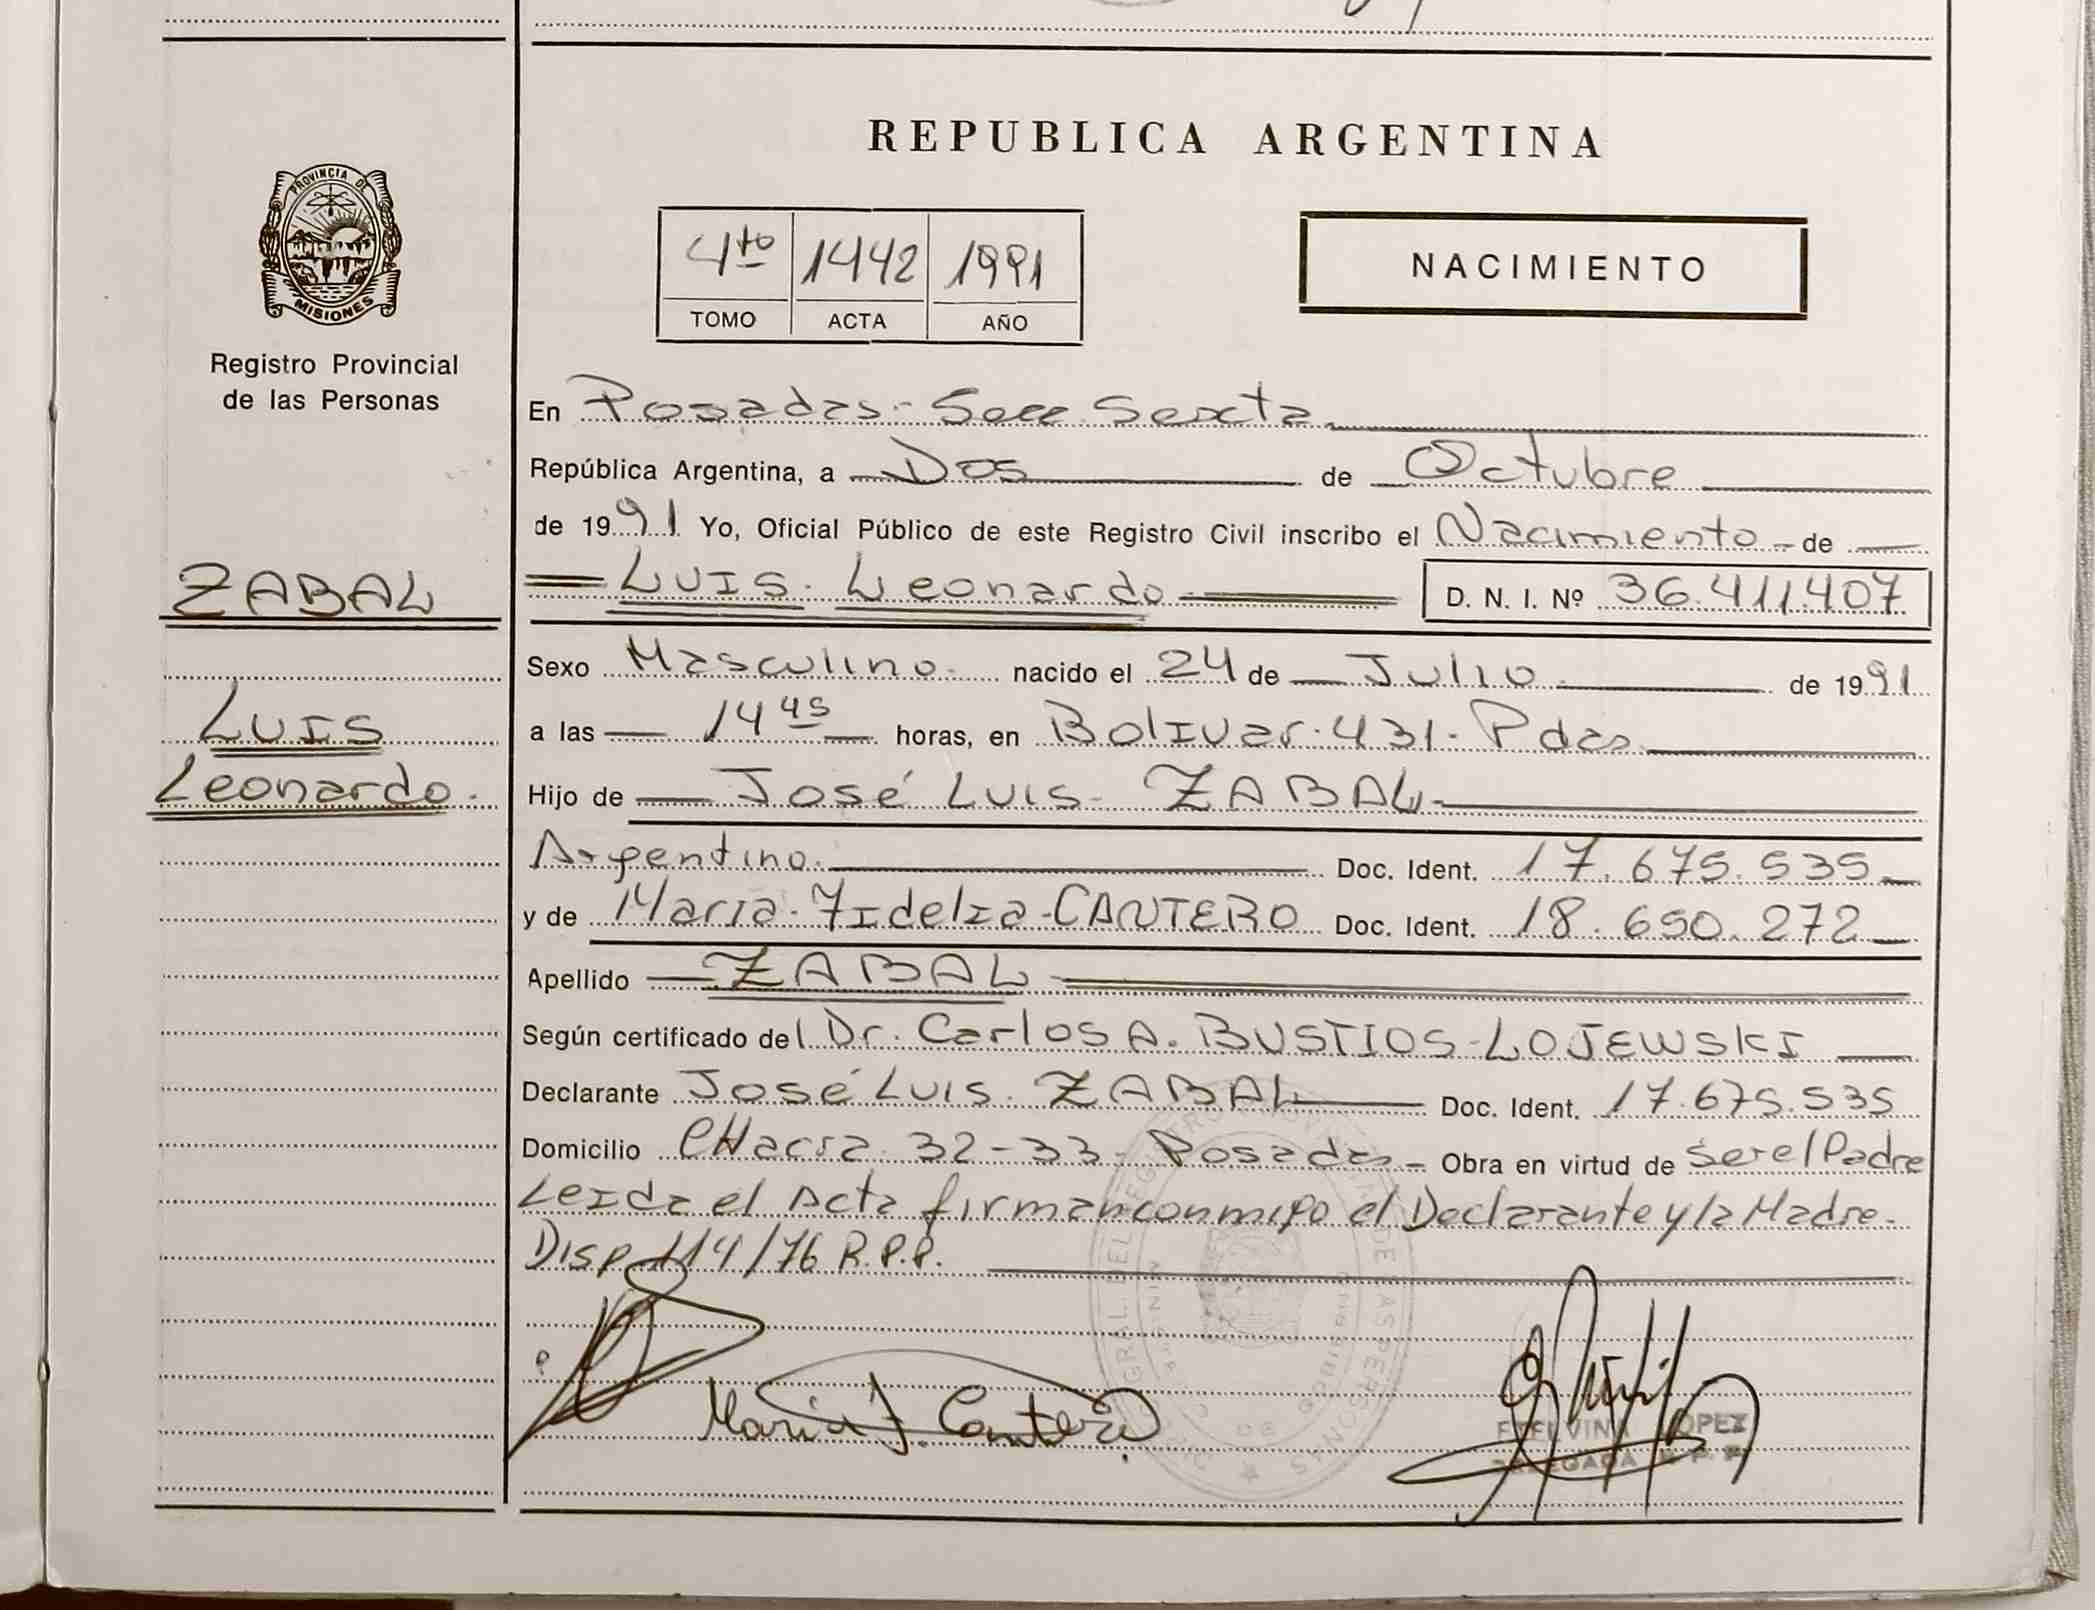 REPUBLICA ARGENTINA
PROVINCIA DE
MISIONES
Registro Provincial
de las Personas
4to 1442 1991
TOMO ACTA AÑO
NACIMIENTO
En Posadas - Secc. Sexcta
República Argentina, a Dos de Octubre
de 1991 Yo, Oficial Público de este Registro Civil inscribo el Nacimiento de
ZABAL
Luis Leonardo D. N. I. Nº 36.411.407
Sexo Masculino nacido el 24 de Julio de 1991
Luis
a las 14 45 horas, en Bolivar 431 - Pdas
Leonardo.
Hijo de José Luis ZABAL
Argentino. Doc. Ident. 17.675.535
y de Maria Fidelia CANTERO Doc. Ident. 18.650.272
Apellido ZABAL
Según certificado del Dr. Carlos A. BUSTIOS LOJEWSKI
Declarante José Luis ZABAL Doc. Ident. 17.675.535
Domicilio CHacra 32-33 - Posadas - Obra en virtud de Ser el Padre
Leida el Acta firman conmigo el Declarante y la Madre.
Disp 114/76 R.P.P.
Maria F. Cantero
ETELVINA LOPEZ
DELEGADA R. P. P.